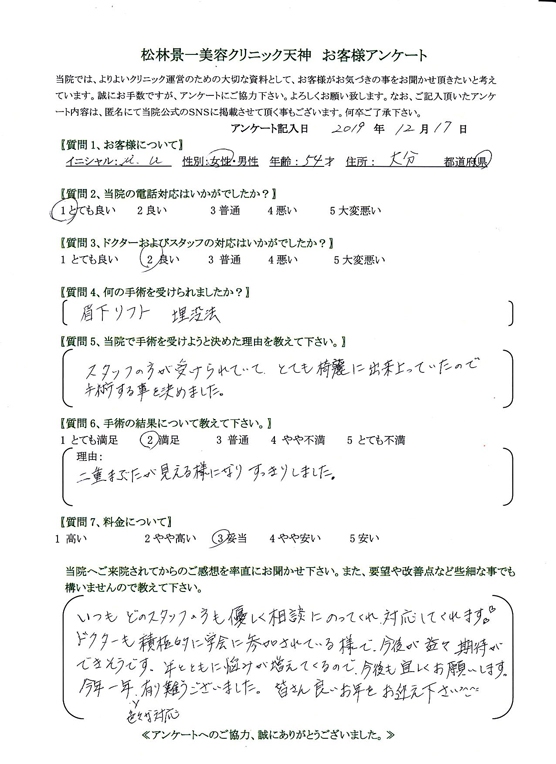 松林景一美容クリニック天神　お客様アンケート
当院では、よりよいクリニック運営のための大切な資料として、お客様がお気づきの事をお聞かせ頂きたいと考え
ています。誠にお手数ですが、アンケートにご協力下さい。よろしくお願い致します。なお、ご記入頂いたアンケ
ート内容は、匿名にて当院公式のSNSに掲載させて頂く事もございます。何卒ご了承下さい。
アンケート記入日　2019　年　12　月　17　日
〖質問1、お客様について〗
イニシャル：M. U　性別：女性・男性　年齢：54才　住所：　大分　都道府県
〖質問2、当院の電話対応はいかがでしたか？〗
1 とても良い　2 良い　3 普通　4 悪い　5 大変悪い
〖質問3、ドクターおよびスタッフの対応はいかがでしたか？〗
1 とても良い　2 良い　3 普通　4 悪い　5 大変悪い
〖質問4、何の手術を受けられましたか？〗
眉下リフト　埋没法
〖質問5、当院で手術を受けようと決めた理由を教えて下さい。〗
スタッフの方が受けられていて、とても綺麗に出来上っていたので
手術する事を決めました。
〖質問6、手術の結果について教えて下さい。〗
1 とても満足　2 満足　3 普通　4 やや不満　5 とても不満
理由：
二重まぶたが見える様になり すっきりしました。
〖質問7、料金について〗
1 高い　2 やや高い　3 妥当　4 やや安い　5 安い
当院へご来院されてからのご感想を率直にお聞かせ下さい。また、要望や改善点など些細な事でも
構いませんので教えて下さい。
いつも どのスタッフの方も優しく相談にのってくれ、対応してくれます。
ドクターも積極的に学会に参加されている様で、今後が益々期待が
できそうです。年とともに悩みが増えてくるので、今後も宜しくお願いします。
今年一年、有り難うございました。皆さん良いお年をお迎え下さい
色々な対応
≪アンケートへのご協力、誠にありがとうございました。≫